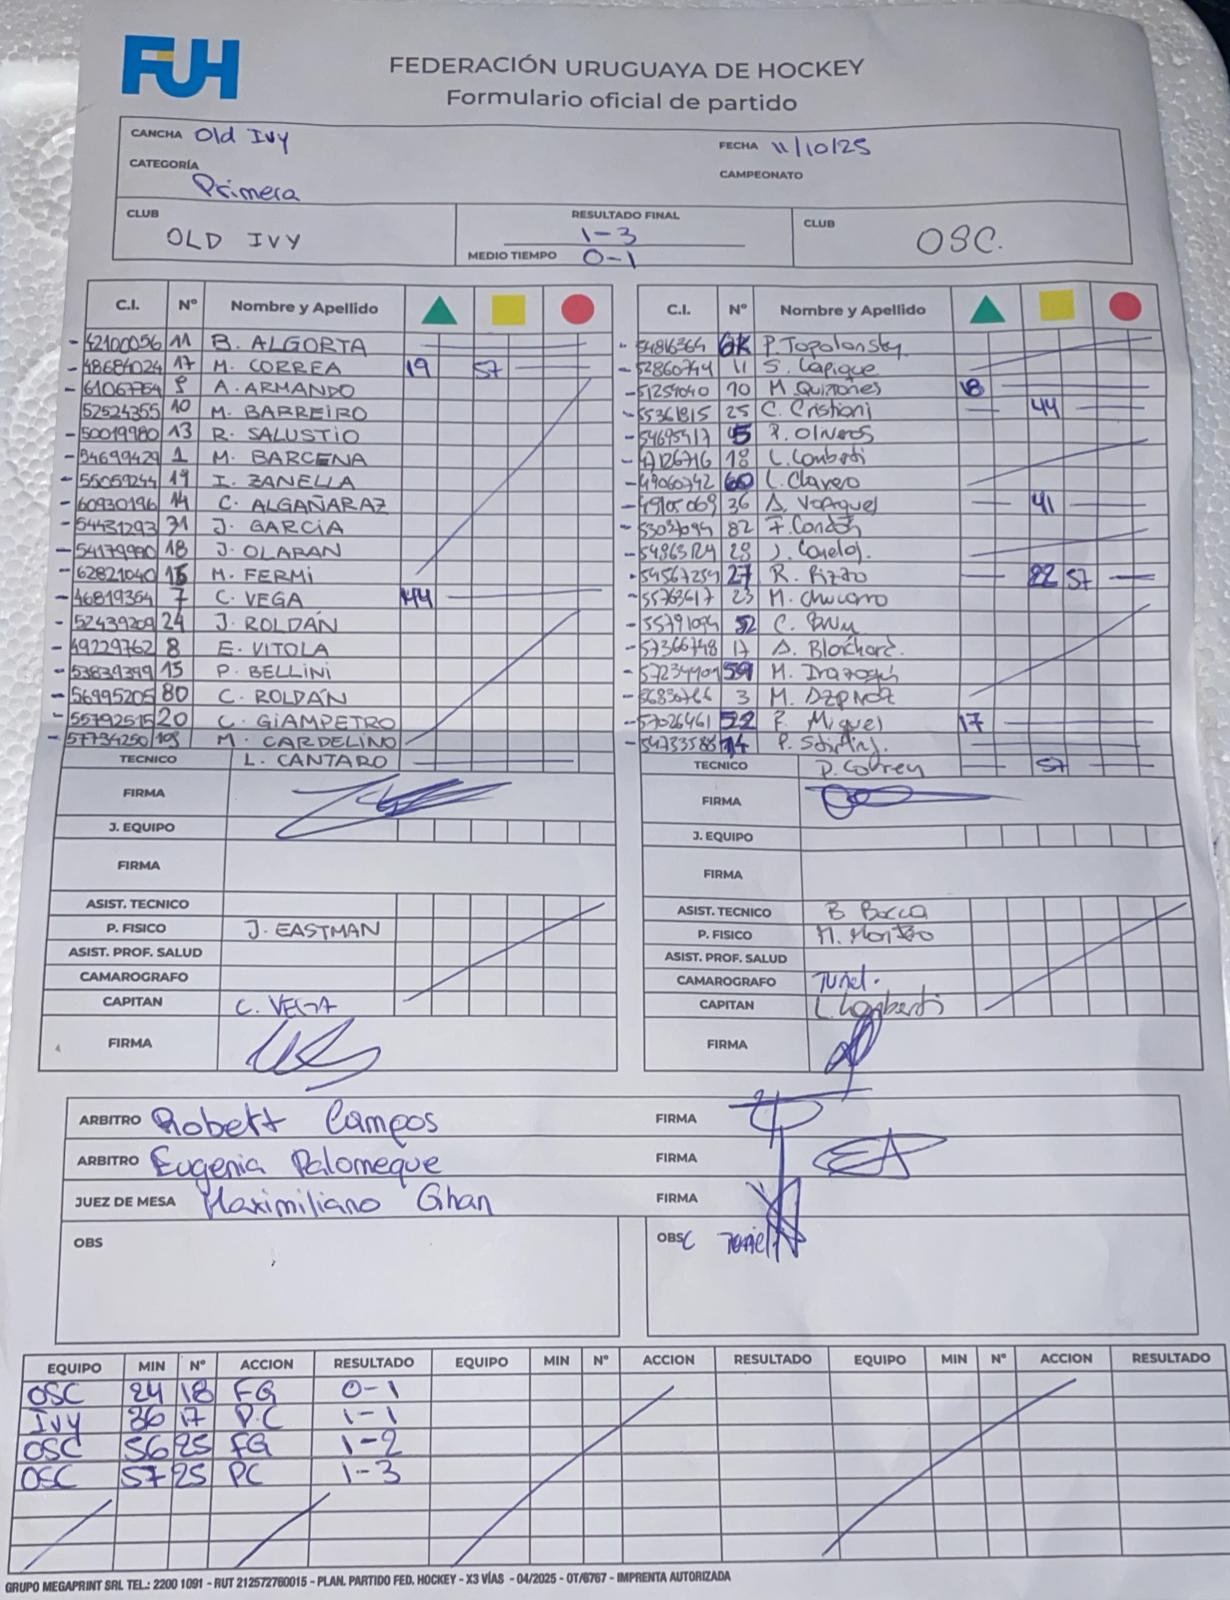 FUH
FEDERACIÓN URUGUAYA DE HOCKEY
Formulario oficial de partido
CANCHA Old Ivy
FECHA 11/10/25
CATEGORÍA Primera
CAMPEONATO
CLUB OLD IVY
RESULTADO FINAL 1-3
MEDIO TIEMPO 0-1
CLUB OSC.
C.I. Nº Nombre y Apellido
42100056 11 B. ALGORTA
48684024 17 M. CORREA 19 57
61067754 9 A. ARMANDO
52524355 10 M. BARREIRO
50019980 13 R. SALUSTIO
54699429 1 M. BARCENA
55059244 19 I. ZANELLA
60930196 14 C. ALGAÑARAZ
54431293 31 J. GARCÍA
54179990 18 J. OLARAN
62821040 M. FERMI
46819364 7 C. VEGA 44
52439209 24 J. ROLDÁN
49229762 8 E. VITOLA
53839399 15 P. BELLINI
56995205 80 C. ROLDÁN
55792515 20 C. GIAMPETRO
57734250 M. CARDELINO
TECNICO L. CANTARO
FIRMA
J. EQUIPO
FIRMA
ASIST. TECNICO
P. FISICO J. EASTMAN
ASIST. PROF. SALUD
CAMAROGRAFO
CAPITAN C. VEGA
FIRMA
C.I. Nº Nombre y Apellido
GK P. Topolansky
52860744 11 S. Capique
51259040 10 M. Quiñones 18
55361815 25 C. Cristiani 44
54695417 45 P. Oliveros
18 L. Lombardi
49060742 60 L. Clavero
49105069 36 A. Vazquez 41
82 F. Conde
J.
54567259 27 R. Rizzo 22 57
55763617 23 M. Chucarro
52 C.
57366748 17 A. Blanchard.
59 M. Irazoqui
3 M.
57026461 52 F. Miguel 17
54733588 14 P. Stirling.
TECNICO P. Correy 57
FIRMA
J. EQUIPO
FIRMA
ASIST. TECNICO B Bocca
P. FISICO M.
ASIST. PROF. SALUD
CAMAROGRAFO
CAPITAN L. Lombardi
FIRMA
ARBITRO Robert Campos FIRMA
ARBITRO Eugenia Palomeque FIRMA
JUEZ DE MESA Maximiliano Ghan FIRMA
OBS
OBS
EQUIPO MIN Nº ACCION RESULTADO EQUIPO MIN Nº ACCION RESULTADO EQUIPO MIN Nº ACCION RESULTADO
OSC 24 18 FG 0-1
Ivy 36 17 P.C 1-1
OSC 56 25 FG 1-2
OSC 57 25 PC 1-3
GRUPO MEGAPRINT SRL TEL.: 2200 1091 - RUT 212572760015 - PLAN. PARTIDO FED. HOCKEY - X3 VÍAS - 04/2025 - OT/6767 - IMPRENTA AUTORIZADA